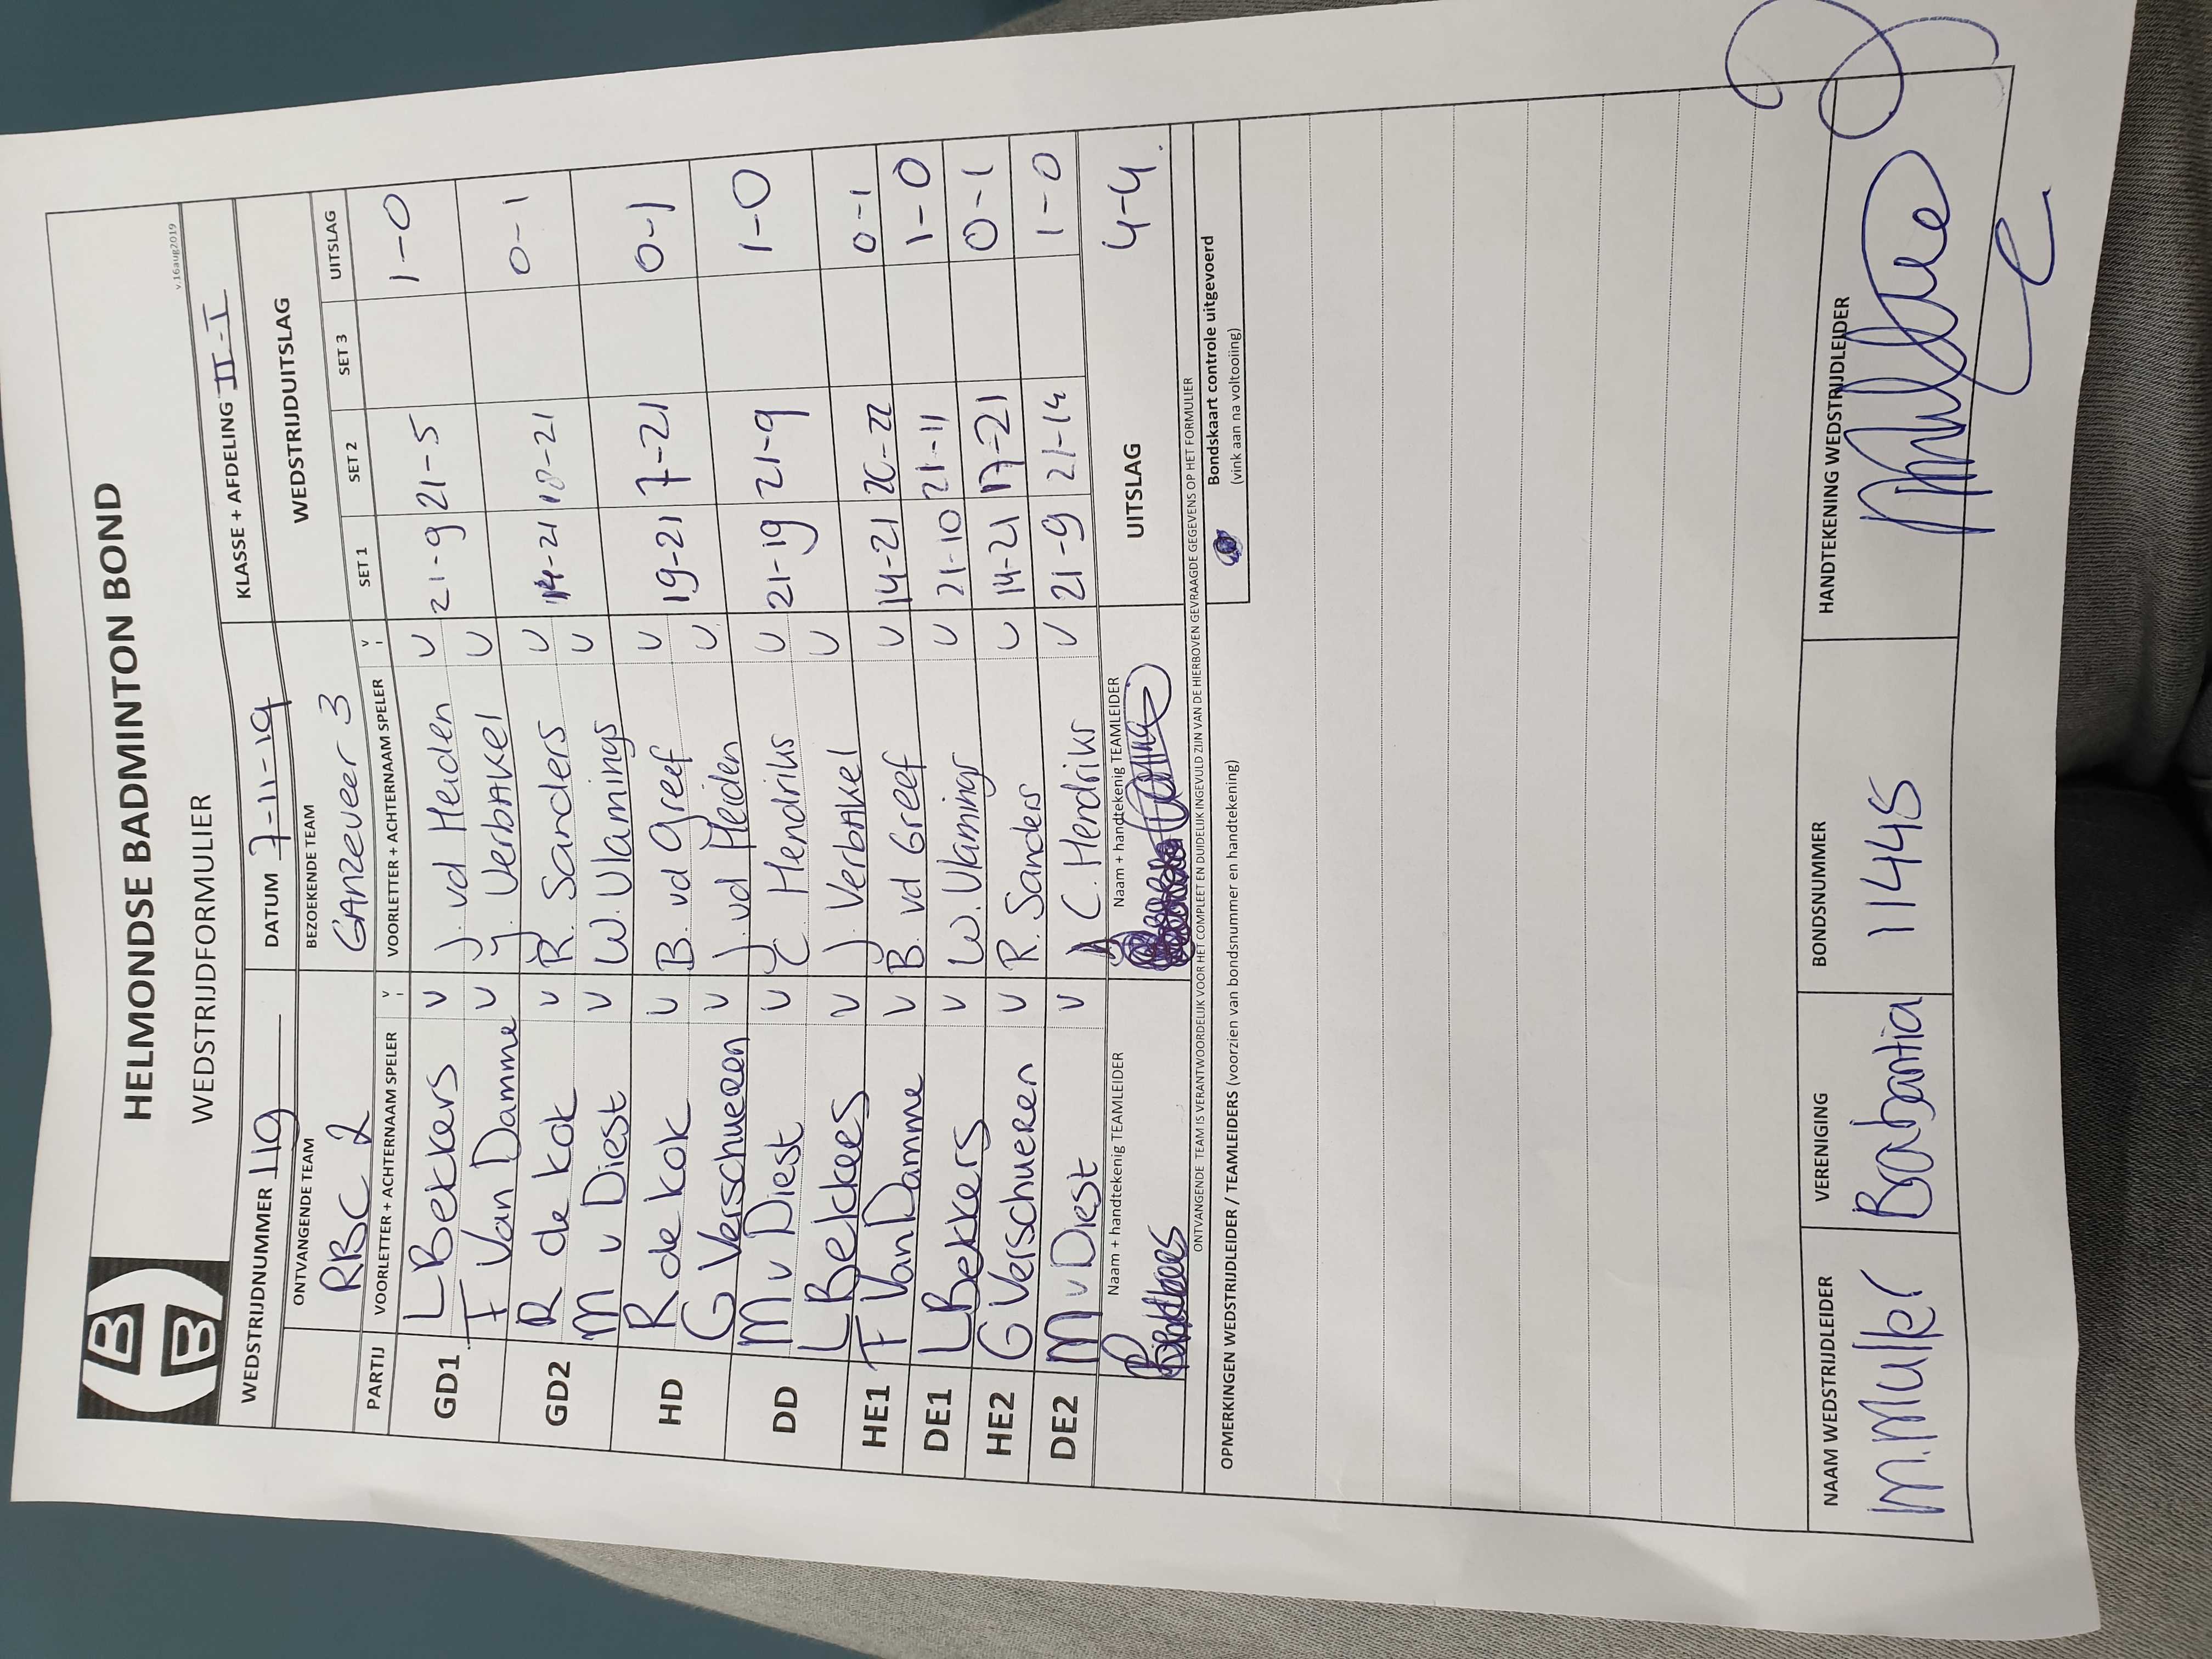 HELMONDSE BADMINTON BOND
WEDSTRIJDFORMULIER
v.16aug2019
WEDSTRIJDNUMMER 119 DATUM 7-11-19 KLASSE + AFDELING II-I
ONTVANGENDE TEAM BEZOEKENDE TEAM WEDSTRIJDUITSLAG
RBC 2 GANZEVEER 3
PARTIJ VOORLETTER + ACHTERNAAM SPELER V VOORLETTER + ACHTERNAAM SPELER V SET 1 SET 2 SET 3 UITSLAG
GD1 L Bekkers v J. vd Heiden v 21-9 21-5 1-0
F Van Damme v Y. Verbakel v
GD2 R de kok v R. Sanders v 14-21 18-21 0-1
M v Diest v W. Vlamings v
HD R de kok v B. vd Greef v 19-21 7-21 0-1
G Verschueren v J. vd Heiden v
DD M v Diest v C Hendriks v 21-19 21-9 1-0
L Bekkers v J. Verbakel v
HE1 F Van Damme v B. vd Greef v 14-21 20-22 0-1
DE1 L Bekkers v W. Vlamings v 21-10 21-11 1-0
HE2 G Verschueren v R. Sanders v 14-21 17-21 0-1
DE2 M v Diest v C. Hendriks v 21-9 21-14 1-0
Naam + handtekenig TEAMLEIDER Naam + handtekenig TEAMLEIDER UITSLAG 4-4
ONTVANGENDE TEAM IS VERANTWOORDELIJK VOOR HET COMPLEET EN DUIDELIJK INGEVULD ZIJN VAN DE HIERBOVEN GEVRAAGDE GEGEVENS OP HET FORMULIER
Bondskaart controle uitgevoerd
(vink aan na voltooiing)
OPMERKINGEN WEDSTRIJDLEIDER / TEAMLEIDERS (voorzien van bondsnummer en handtekening)
NAAM WEDSTRIJDLEIDER VERENIGING BONDSNUMMER HANDTEKENING WEDSTRIJDLEIDER
M. Muller Brabantia 11445